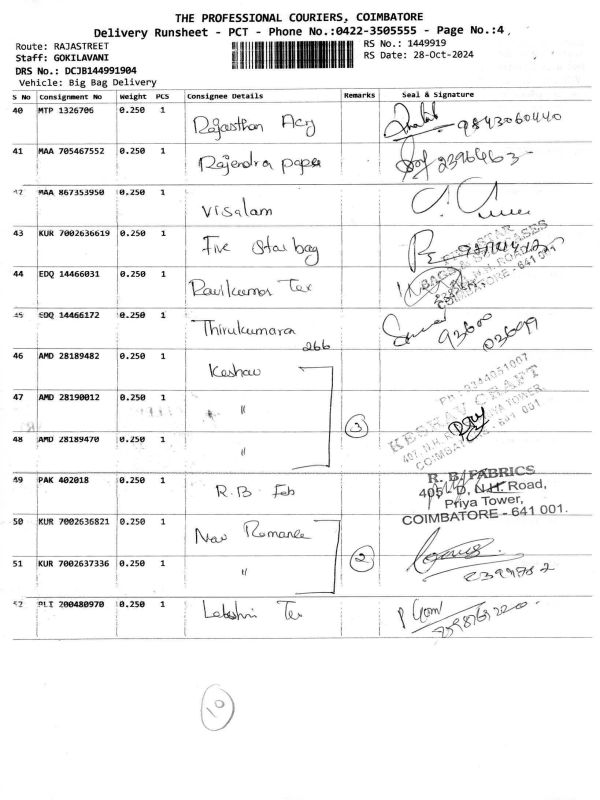 THE PROFESSIONAL COURIERS, COIMBATORE
Delivery Runsheet - PCT - Phone No.:0422-3505555 - Page No.:4
Route: RAJASTREET RS No.: 1449919
Staff: GOKILAVANI RS Date: 28-Oct-2024
DRS No.: DCJB144991904
Vehicle: Big Bag Delivery
S No Consignment No Weight PCS Consignee Details Remarks Seal & Signature
40 MTP 1326706 0.250 1 Rajasthan Acy 9843060440
41 MAA 705467552 0.250 1 Rajendra paper 2396463
42 MAA 867353950 0.250 1 Visalam
43 KUR 7002636619 0.250 1 Five Star bag
FIVE STAR
BAGS & SUITCASES
44 EDQ 14466031 0.250 1 Ravikumar Tex
COIMBATORE - 641 001
45 EDQ 14466172 0.250 1 Thirukumara 93600
266 03699
46 AMD 28189482 0.250 1 Keshav
47 AMD 28190012 0.250 1 "
3
KESHAV CRAFT
COIMBATORE - 641 001
48 AMD 28189470 0.250 1 "
49 PAK 402018 0.250 1 R.B. Feb
R. B. FABRICS
405 - D, N.H. Road,
Priya Tower,
COIMBATORE - 641 001.
50 KUR 7002636821 0.250 1 Nav Romance
2
51 KUR 7002637336 0.250 1 "
52 BLI 200480970 0.250 1 Lakshmi Tex
10